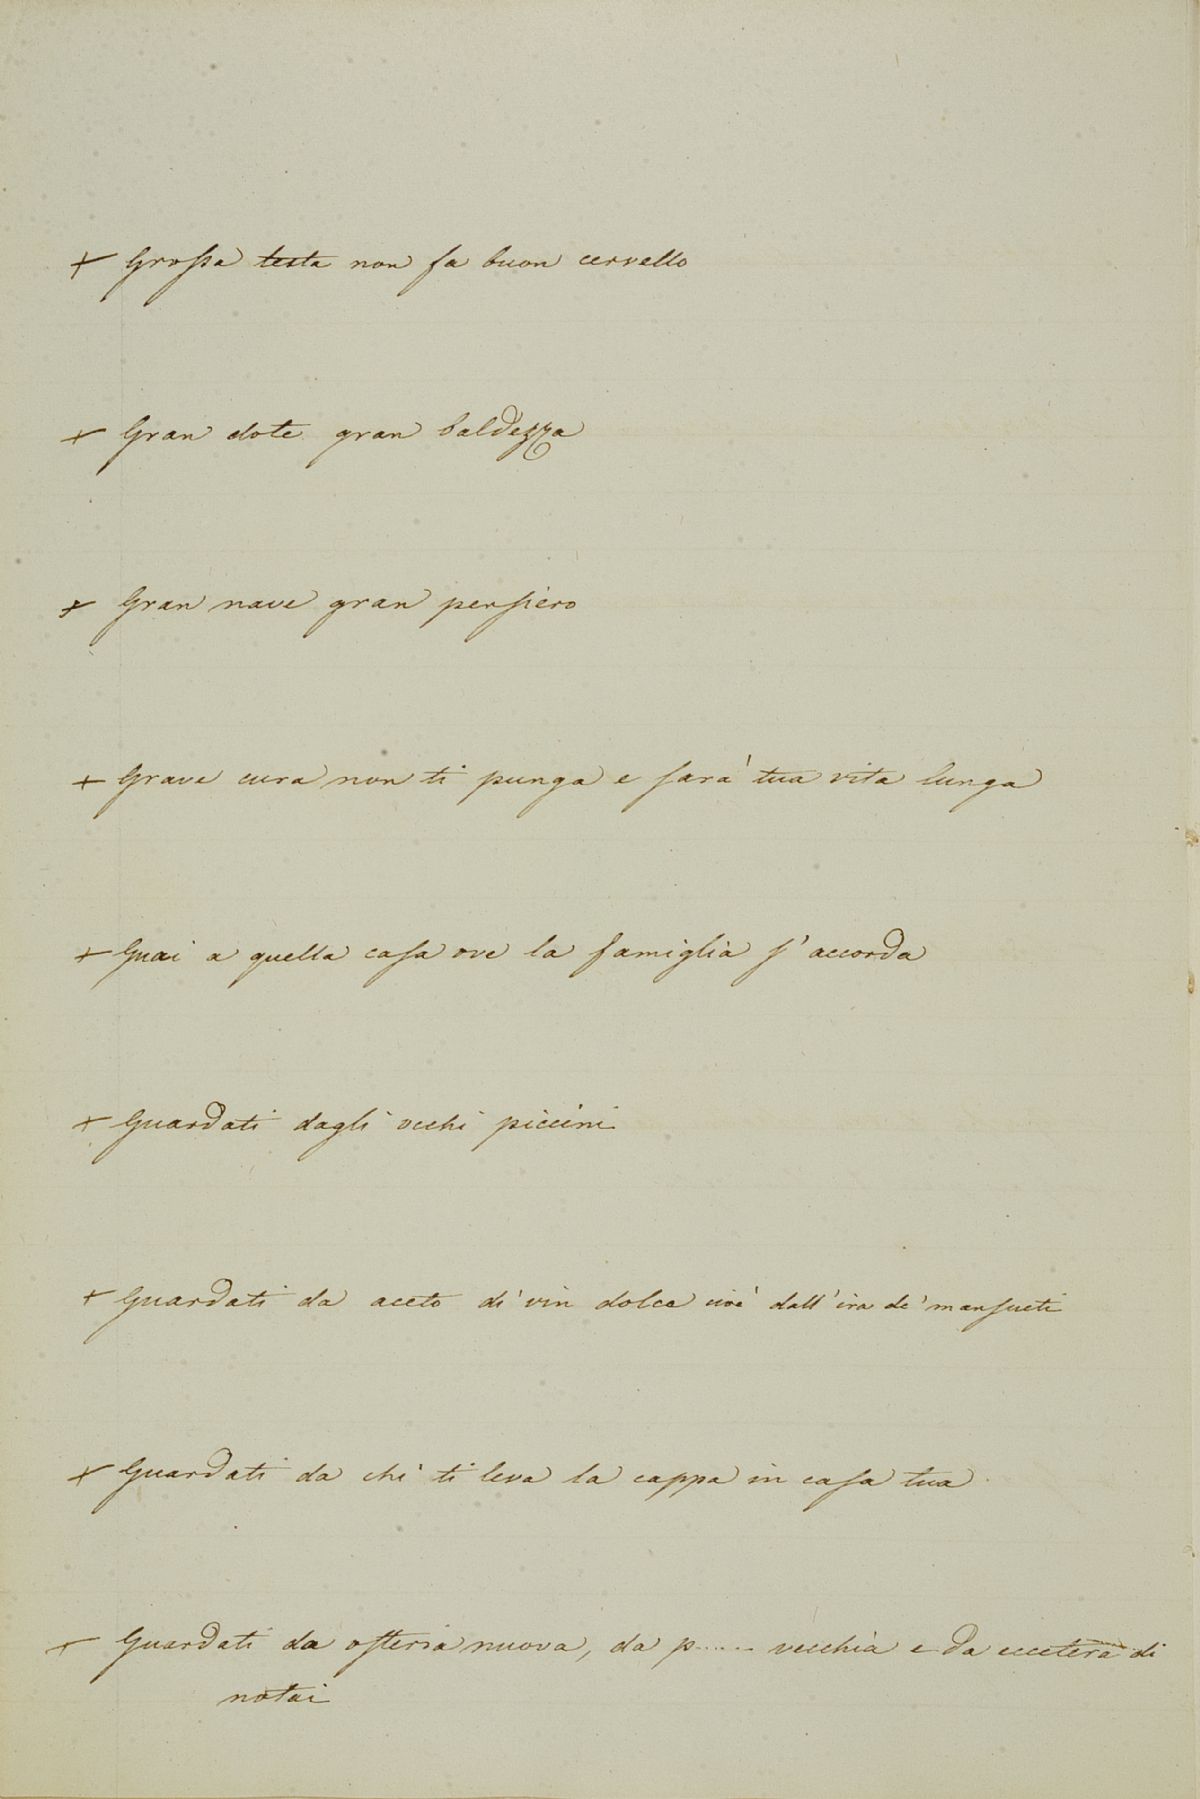 + Grossa testa non fa buon cervello
+ Gran dote gran baldezza
+ Gran nave gran pensiero
+ Grave cura non ti punga e sarà tua vita lunga
+ Guai a quella casa ove la famiglia s'accorda
+ Guardati dagli occhi piccini
+ Guardati da aceto di vin dolce cioè dall'ira de' mansueti
+ Guardati da chi ti leva la cappa in casa tua
+ Guardati da osteria nuova, da p...... vecchia e da eccetera di
notai